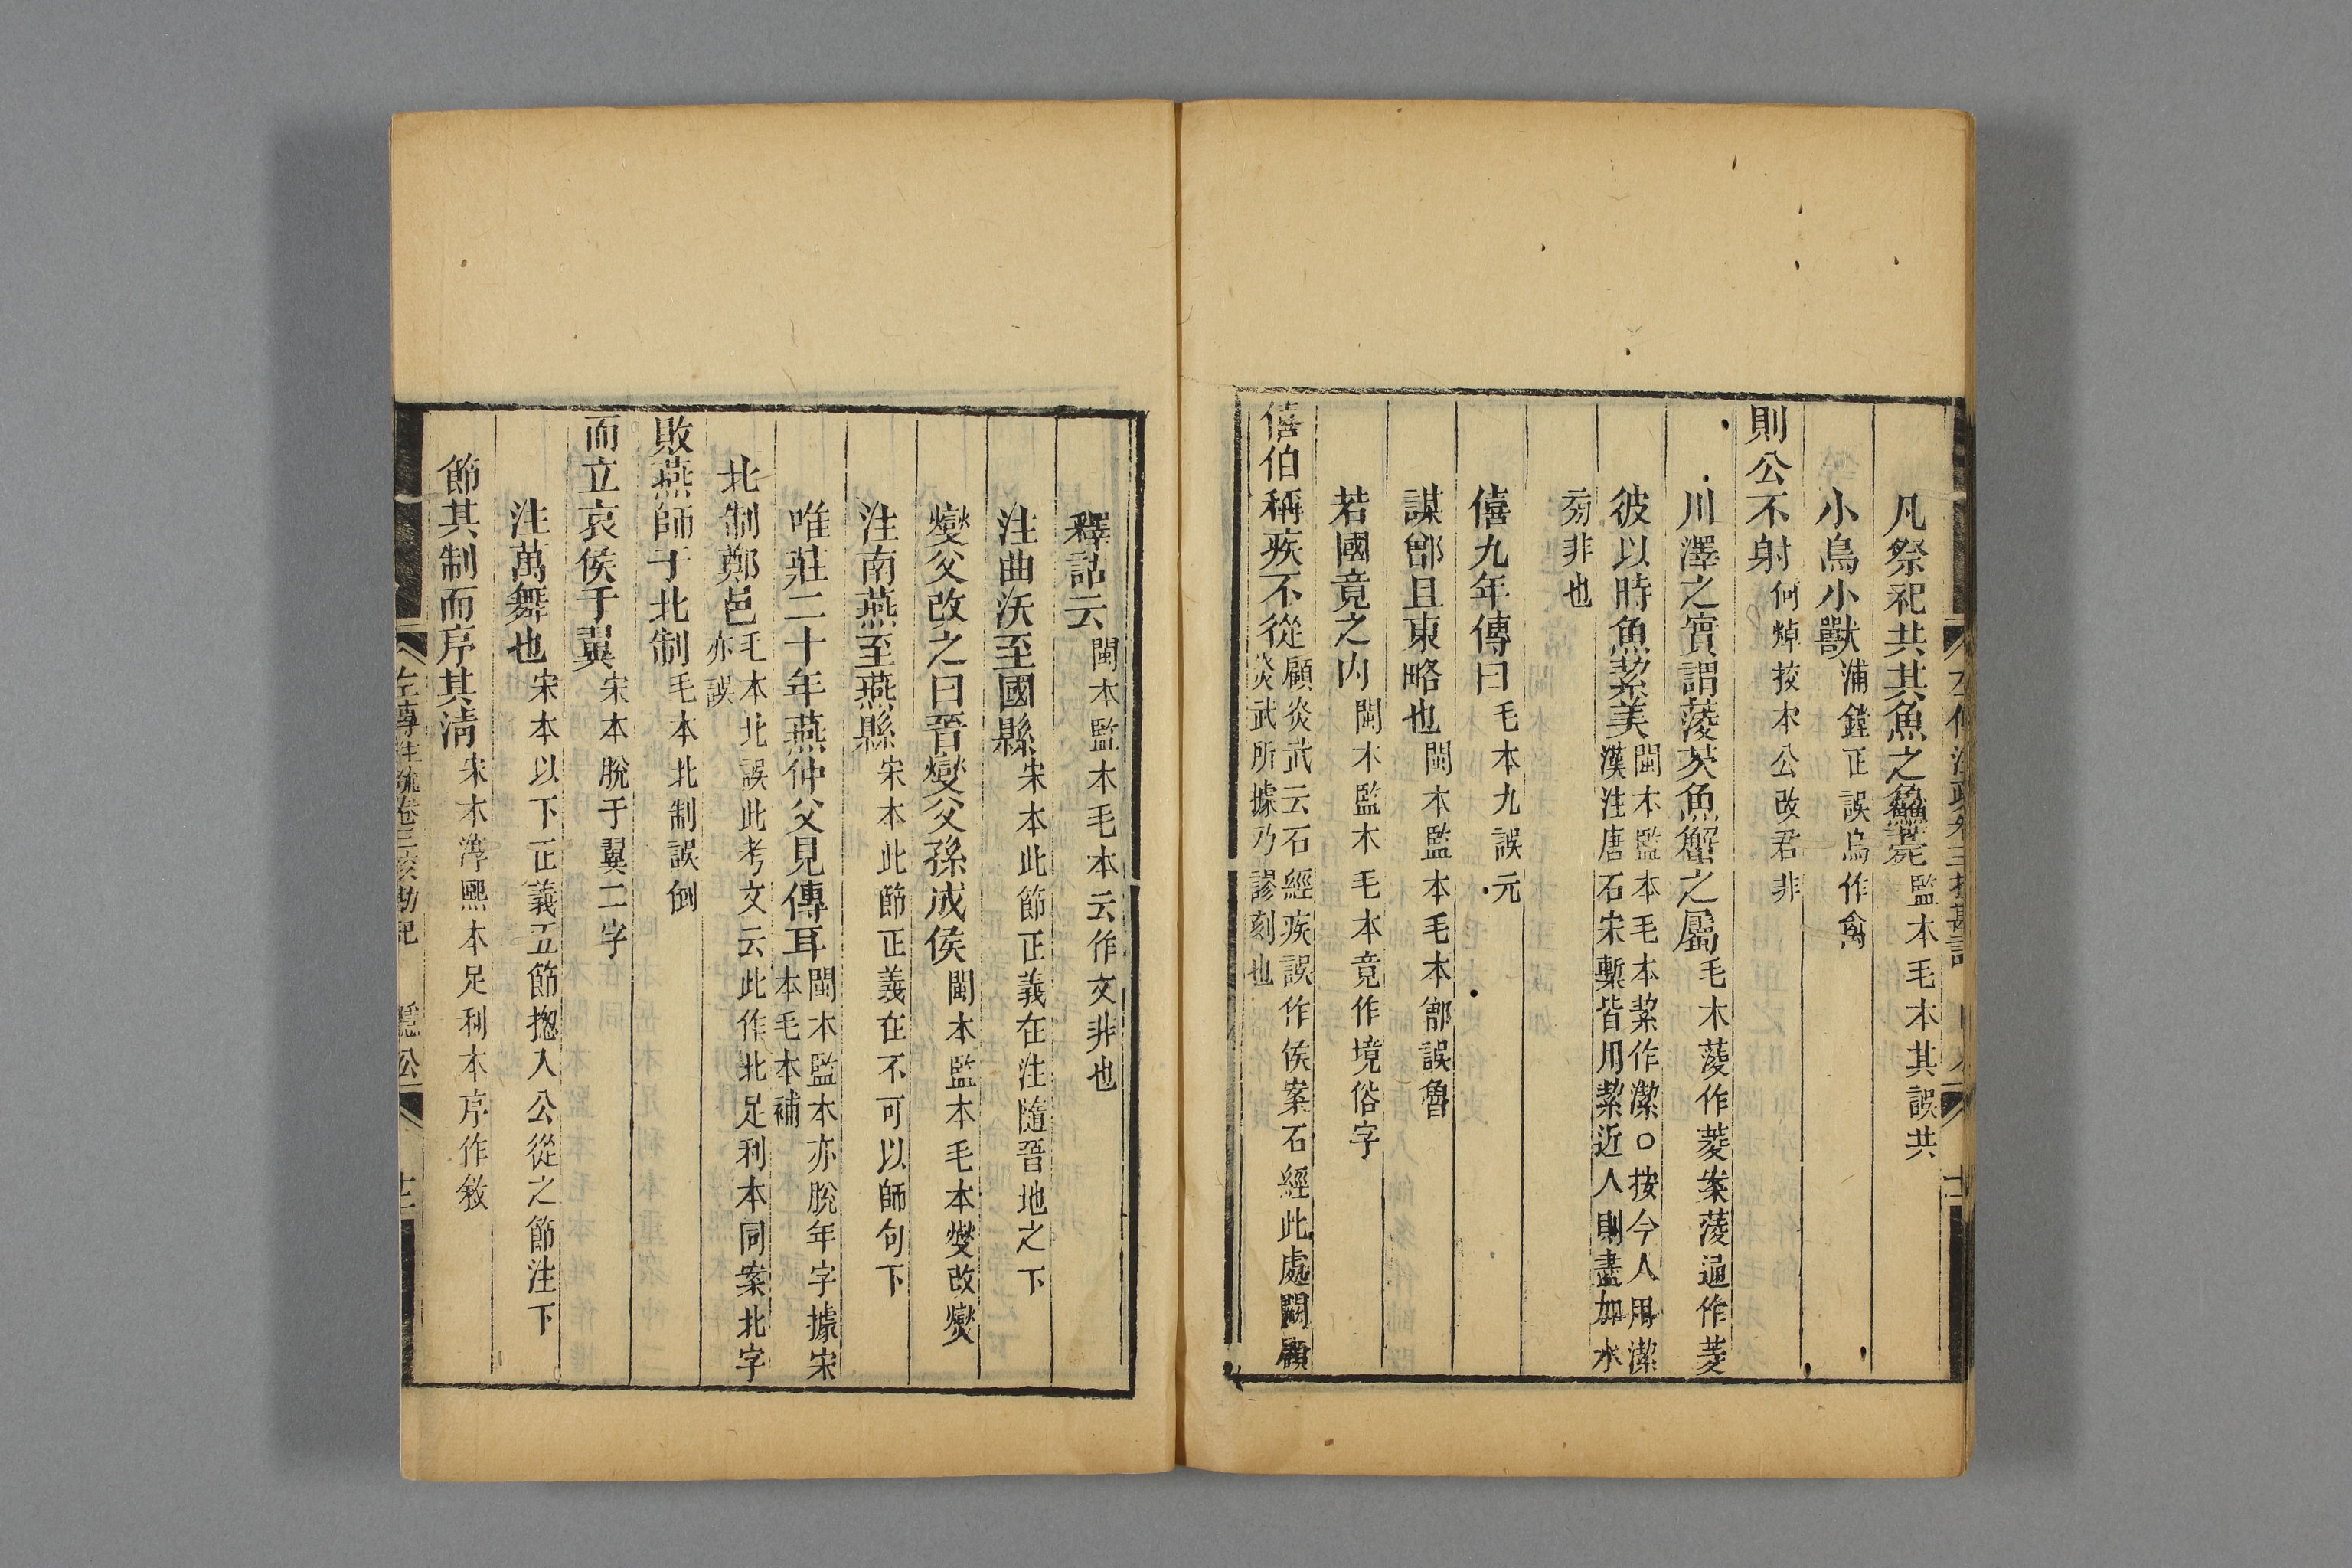 凡祭祀共其魚之鱻薧監本毛本其誤共
小鳥小獸浦鏜正誤鳥作禽
則公不射何焯挍本公改君非
川澤之實謂菱芡魚蟹之屬毛本菱作菱案菱逼作菱
彼以時魚絜美閩本監本毛本絜作潔○按今人用潔
漢注唐石宋槧皆用絜近人則盡加水
㫄非也
僖九年傳曰毛本九誤元
謀鄫且東略也閩本監本毛本鄫誤魯
若國竟之內閩本監本毛本竟作境俗字
僖伯稱疾不從顧炎武云石經疾誤作侯案石經此處闕顧
炎武所據乃謬刻也
釋詁云閩本監本毛本云作文非也
注曲沃至國縣宋本此節正義在注隨晉地之下
燮父改之曰晉燮父孫成侯閩本監本毛本燮改爕
注南燕至燕縣宋本此節正義在不可以師句下
唯莊二十年燕仲父見傳耳閩本監本亦脫年字據宋
本毛本補
北制鄭邑毛本北誤此考文云此作北足利本同案北字
亦誤
敗燕師于北制毛本北制誤倒
而立哀侯于翼宋本脫于翼二字
注萬舞也宋本以下正義五節揔入公從之節注下
節其制而序其清宋本淳熙本足利本序作敘
左傳注疏卷三挍勘記 隱公 十二